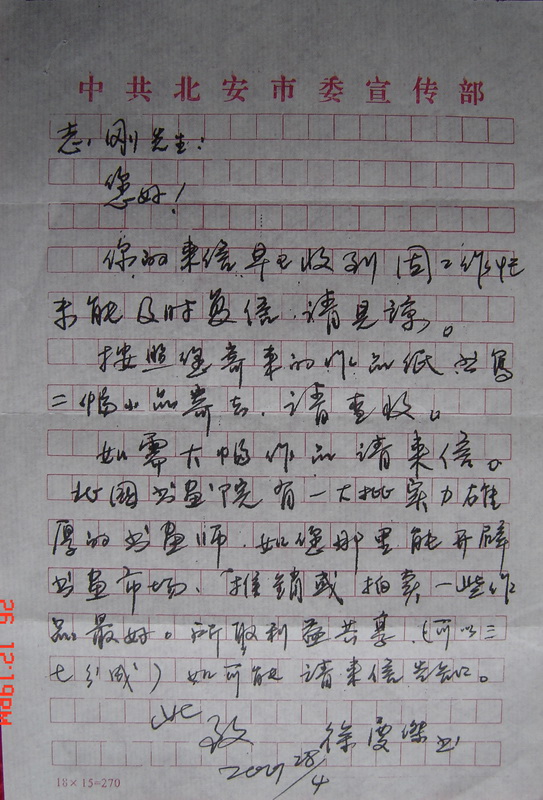 中共北安市委宣传部
志刚先生：
您好！
你的来信早已收到因工作忙
未能及时复信，请见谅。
按照您寄来的作品纸书写
二幅小品寄去，请查收。
如需大幅作品请来信。
北国书画院有一大批实力雄
厚的书画师，如您那里能开辟
书画市场，推销或拍卖一些作
品最好。所取利益共享，（可以三
七分成）如可能请来信告知。
此致
徐 杰书
28/4
18×15=270
26 12:19PM